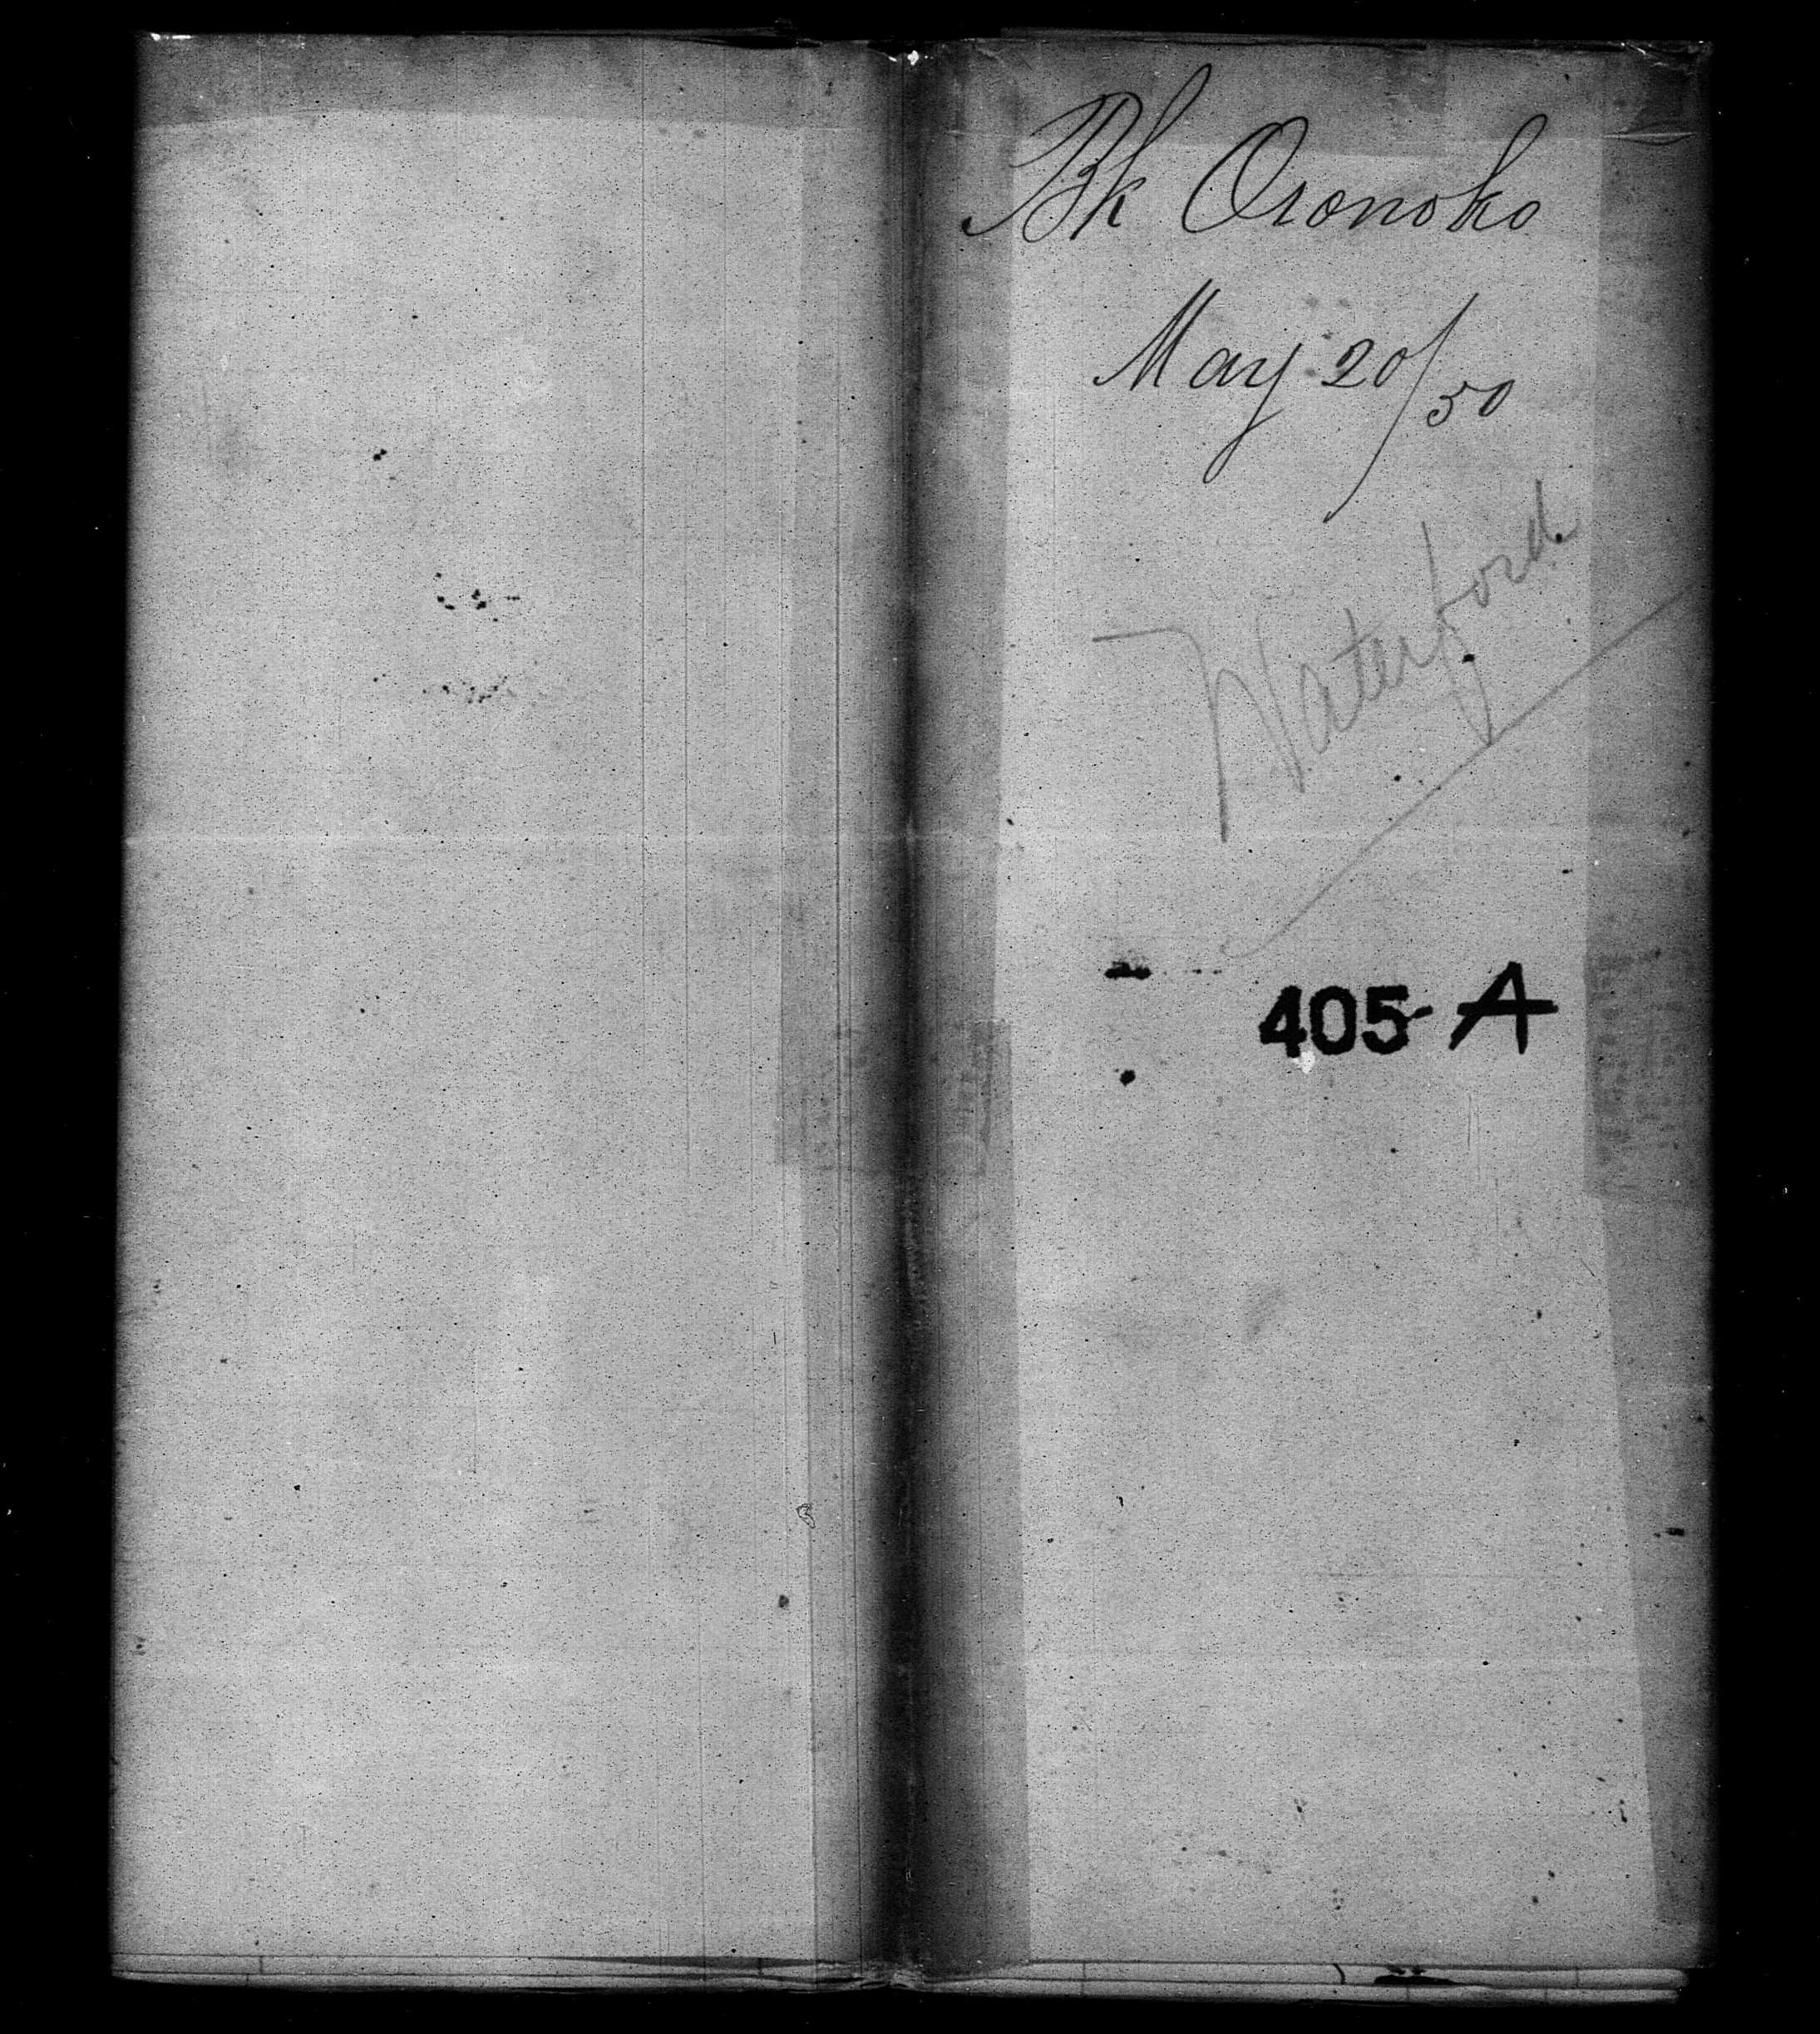 Bk Oronoko
May 20/50
Waterford
405-A